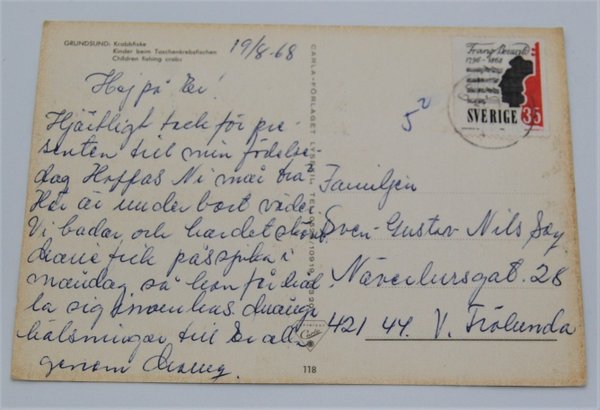 GRUNDSUND: Krabbfiske
Kinder beim Taschenkrebsfischen
Children fishing crabs
19/8-68
Hej på Er!
Hjärtligt tack för pre-
senten till min födelse
dag Hoppas Ni mår bra
Här är underbart väder
Vi badar och har det skönt
fick påssjuka i
måndag så hon får hål
la sig inomhus. många
hälsningar till Er alla
genom
CARLA-FÖRLAGET LYSEKIL
Franz Berwald
1796-1868
SVERIGE 35
5
Familjen
Sven-Gustav Nils
Näverlursgat. 28
421 44. V. Frölunda
Carla
118